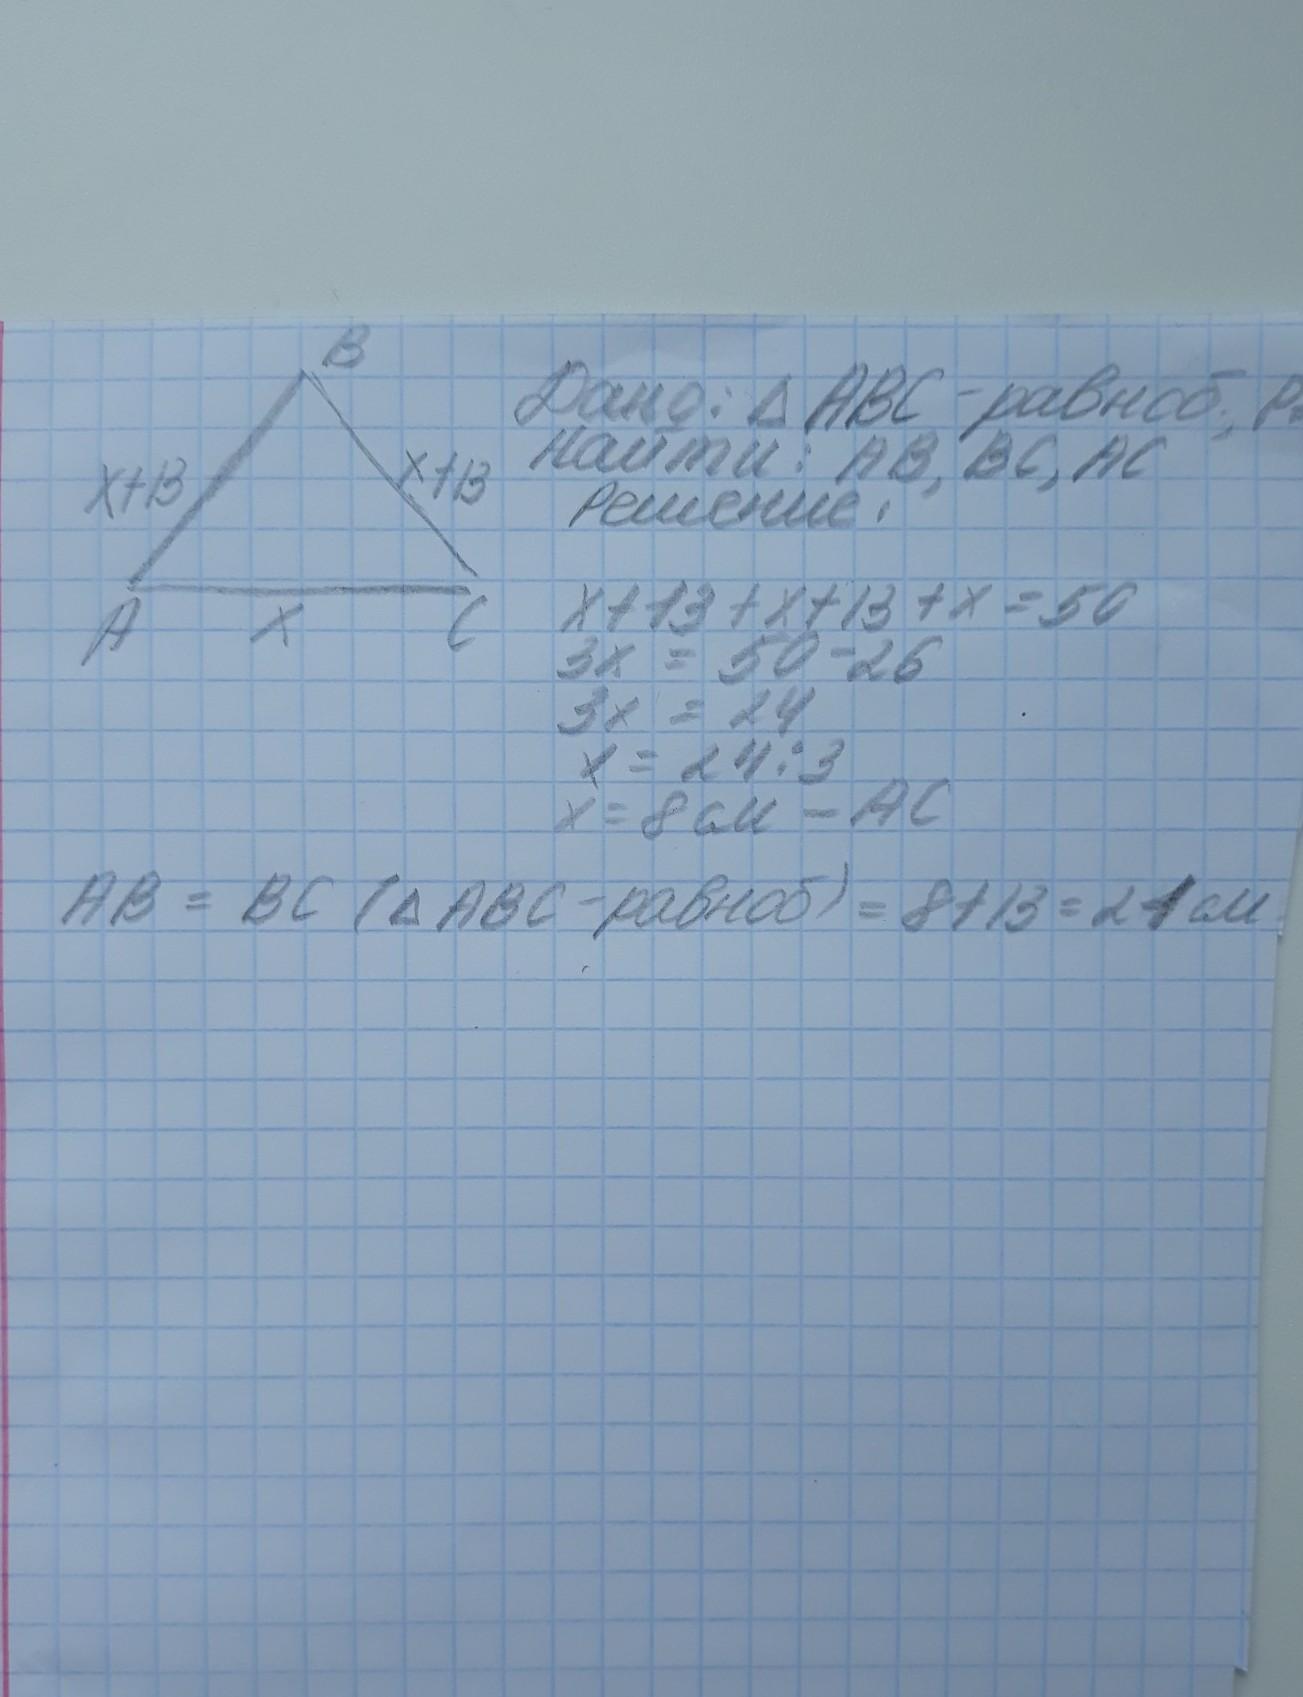 B
Дано: △ ABC - равноб.; P=
x+13
x+13
Найти: AB, BC, AC
Решение:
A
x
C
x+13+x+13+x=50
3x = 50-26
3x = 24
x = 24:3
x = 8 см - AC
AB = BC (△ ABC - равноб) = 8+13 = 21 см.